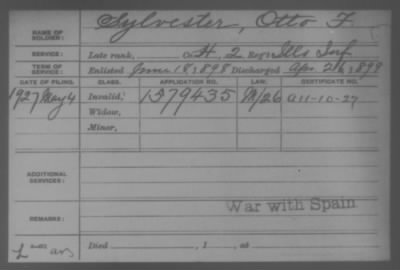 NAME OF SOLDIER: Sylvester, Otto F.
SERVICE: Late rank, Co. H, 2 Reg't Ills Inf
TERM OF SERVICE: Enlisted June 18, 1898 Discharged Apr. 26, 1899
DATE OF FILING. CLASS. APPLICATION NO. LAW. CERTIFICATE NO.
1927 May 4 Invalid, 1579435 M/26 a11-10-27
Widow,
Minor,
ADDITIONAL SERVICES:
War with Spain
REMARKS:
Died , 1 , at